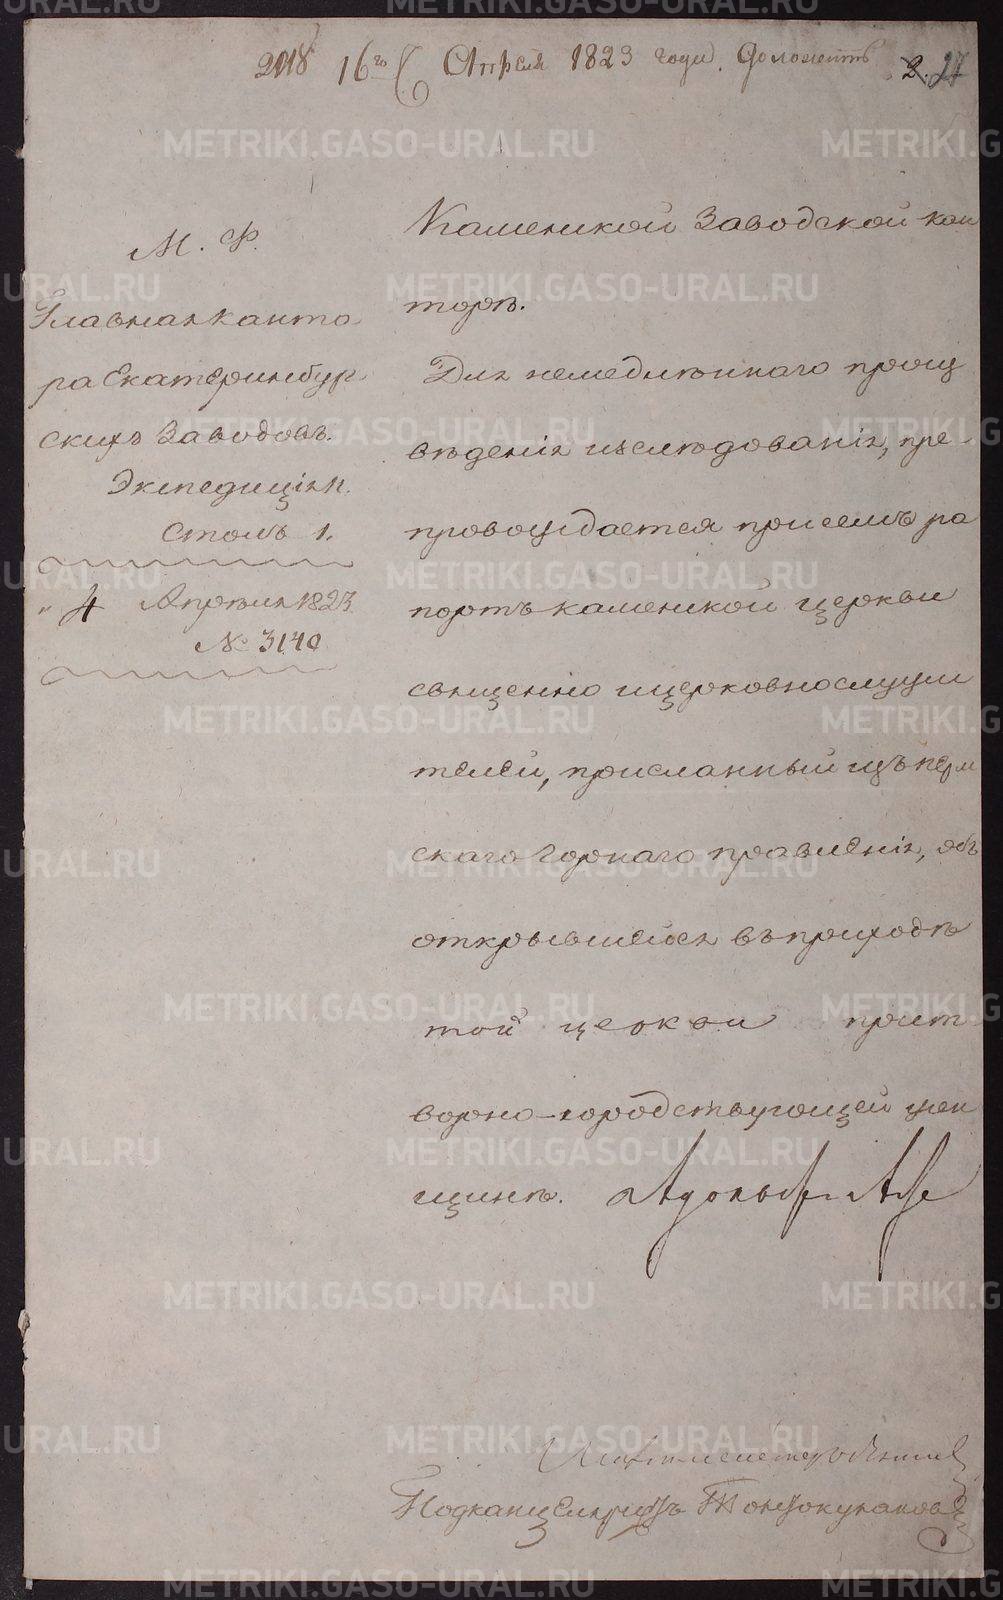 2018 16го Апреля 1823 года. Доложить 2. 27
М. Ф.
Главная канто
ра Екатеринбург
скихъ Заводовъ.
Экспедиція
Столъ 1.
" 4 Апреля 1823
№ 3140
Каменской Заводской кон
торѣ.
Для немедлѣннаго произ
вѣденія изслѣдованія, пре-
провождается присемъ ра
портъ каменской церкви
священно ицерковнослужи
телей, присланный изъ перм
скаго Горнаго правленія, объ
открывшейся въприходѣ
той церкви прит
ворно-юродствующей жен
щинѣ.
Подканцеляристъ
METRIKI.GASO-URAL.RU